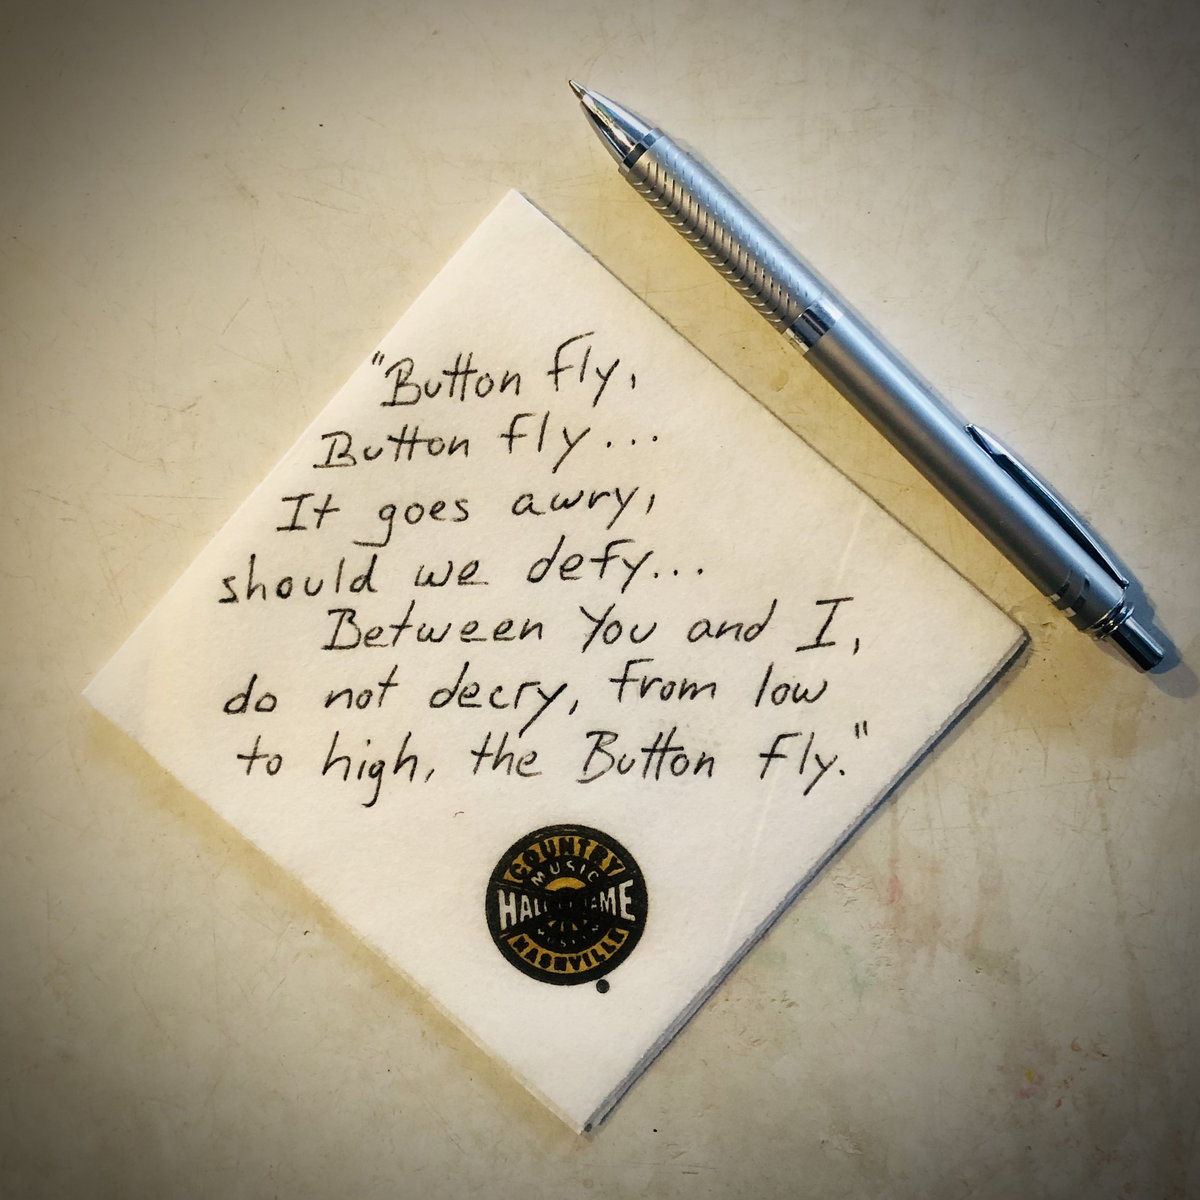 "Button fly,
Button fly...
It goes awry,
should we defy...
Between You and I,
do not decry, from low
to high, the Button fly."
COUNTRY
MUSIC
HALL OF FAME
NASHVILLE